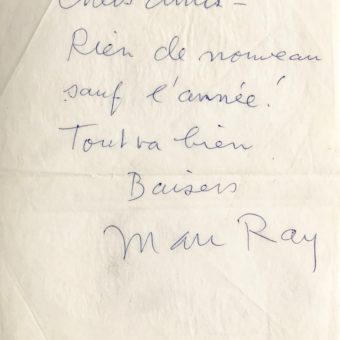 Chers amis –
Rien de nouveau
sauf l'année!
Tout va bien
Baisers
Man Ray